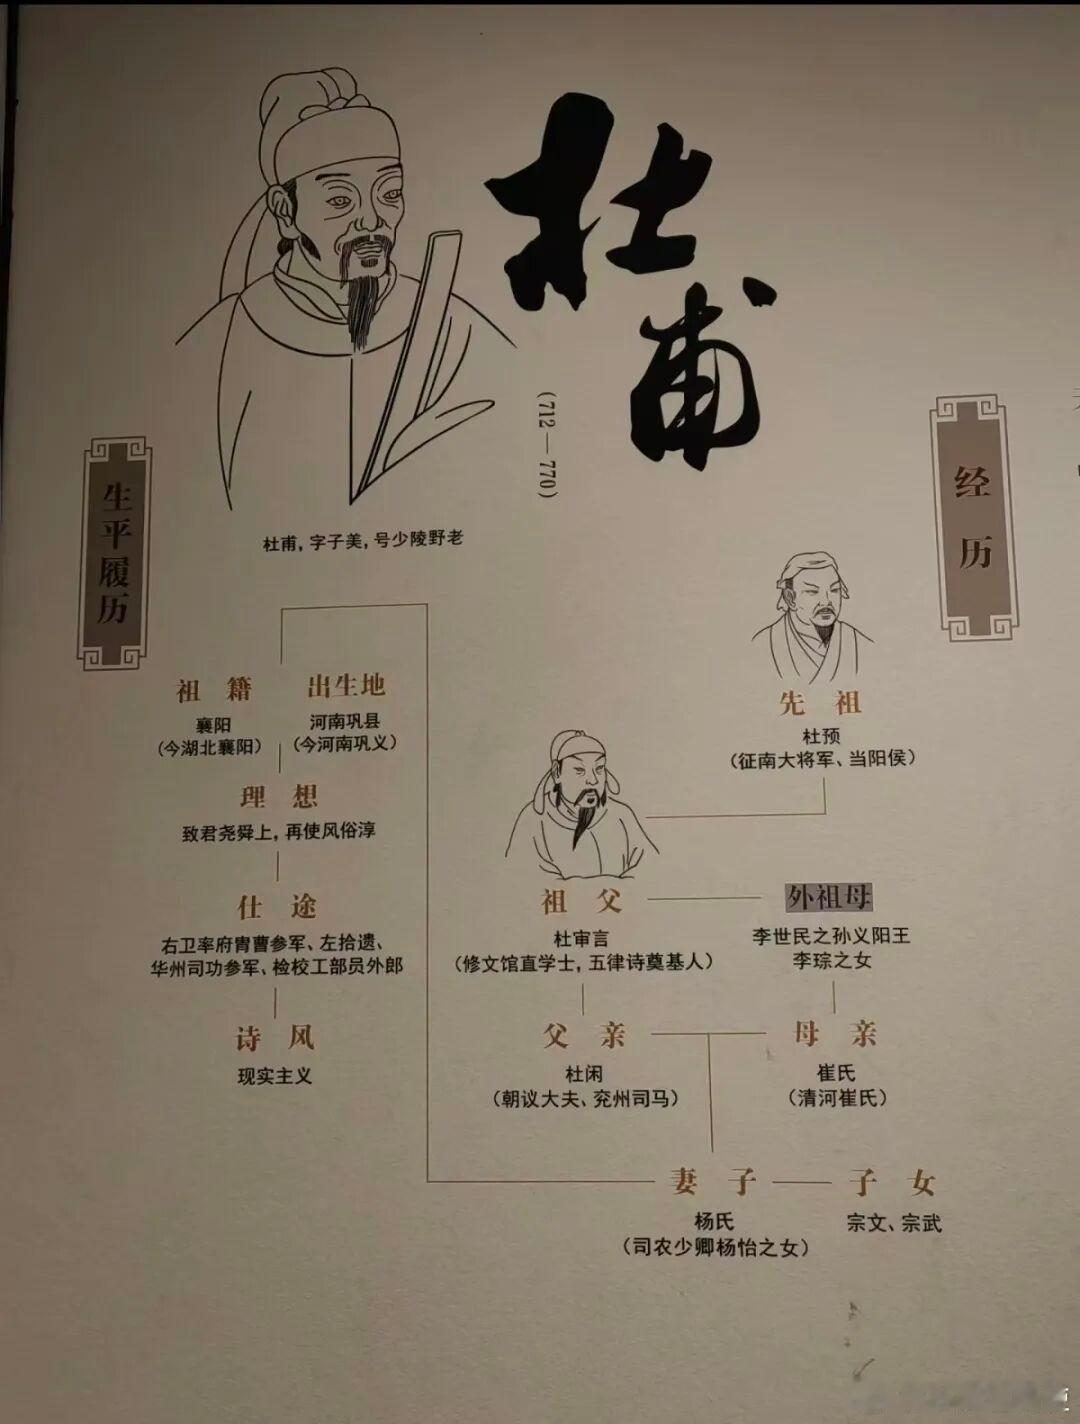 杜甫
(712—770)
杜甫，字子美，号少陵野老
生平履历
祖籍
襄阳
(今湖北襄阳)
出生地
河南巩县
(今河南巩义)
理想
致君尧舜上，再使风俗淳
仕途
右卫率府胄曹参军、左拾遗、
华州司功参军、检校工部员外郎
诗风
现实主义
经历
先祖
杜预
(征南大将军、当阳侯)
祖父
杜审言
(修文馆直学士，五律诗奠基人)
外祖母
李世民之孙义阳王
李琮之女
父亲
杜闲
(朝议大夫、兖州司马)
母亲
崔氏
(清河崔氏)
妻子
杨氏
(司农少卿杨怡之女)
子女
宗文、宗武